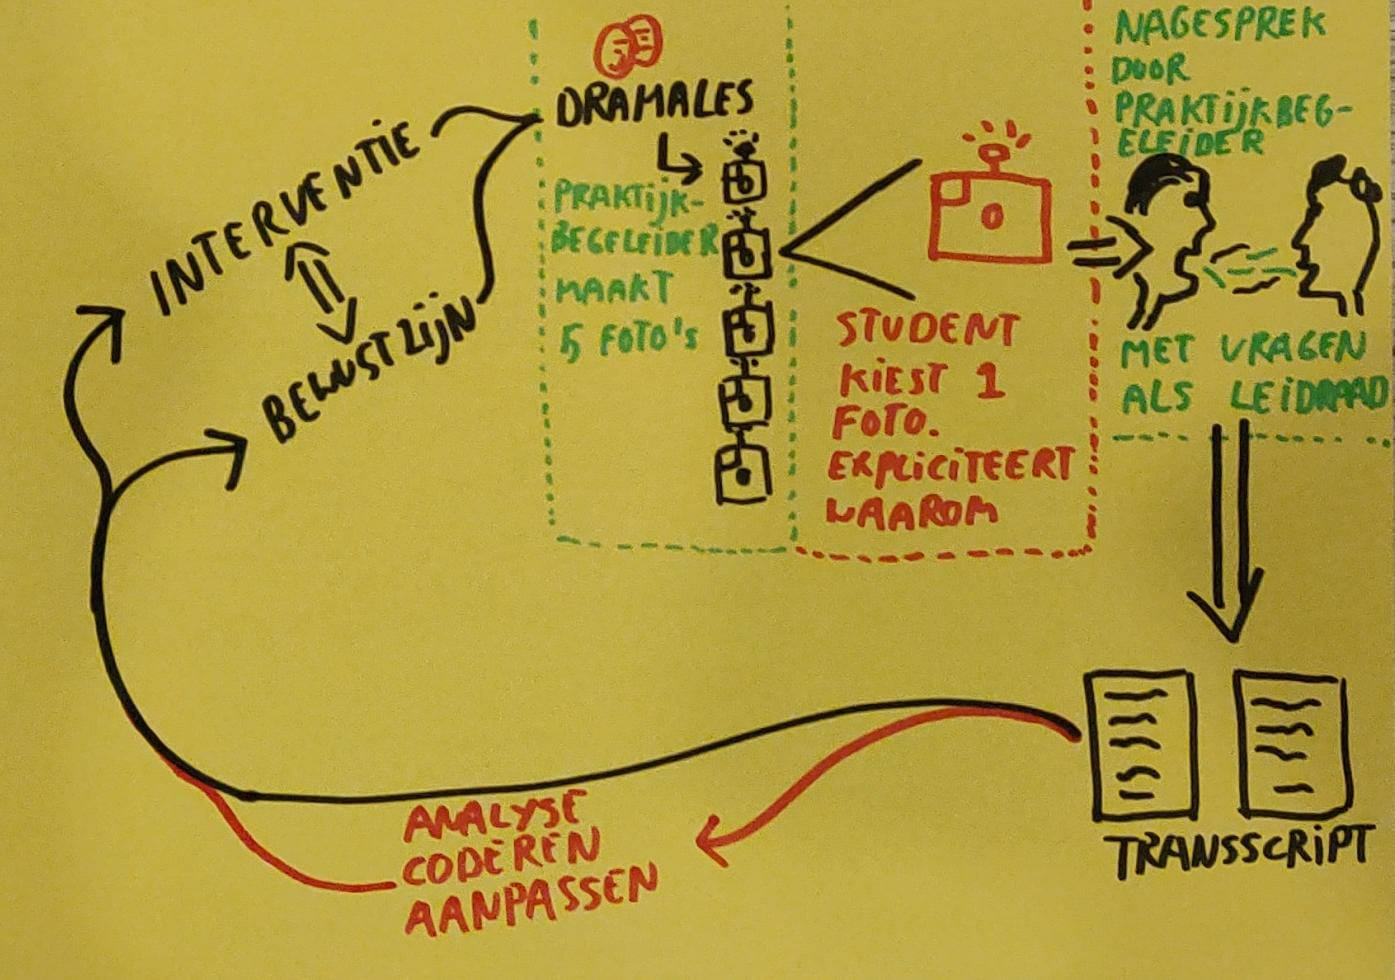 INTERVENTIE
BEWUSTZIJN
DRAMALES
PRAKTIJK-
BEGELEIDER
MAAKT
5 FOTO'S
STUDENT
KIEST 1
FOTO.
EXPLICITEERT
WAAROM
NAGESPREK
DOOR
PRAKTIJKBEG-
ELEIDER
MET VRAGEN
ALS LEIDRAAD
TRANSSCRIPT
ANALYSE
CODEREN
AANPASSEN